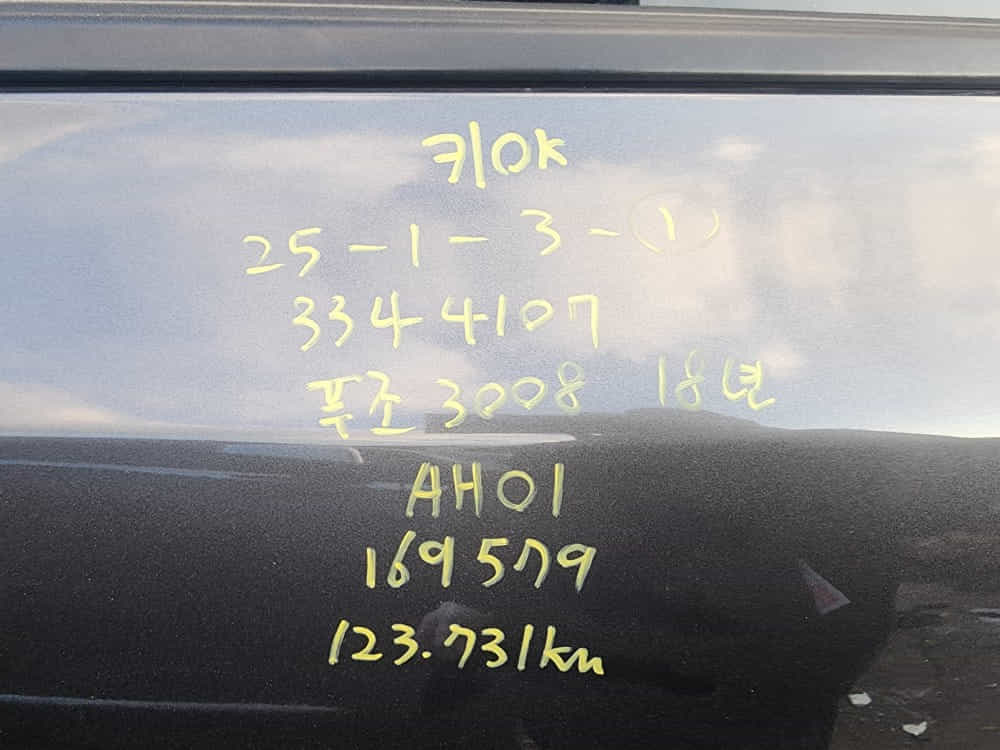 키OK
25-1-3-①
3344107
푸조 3008 18년
AH01
169579
123.731km